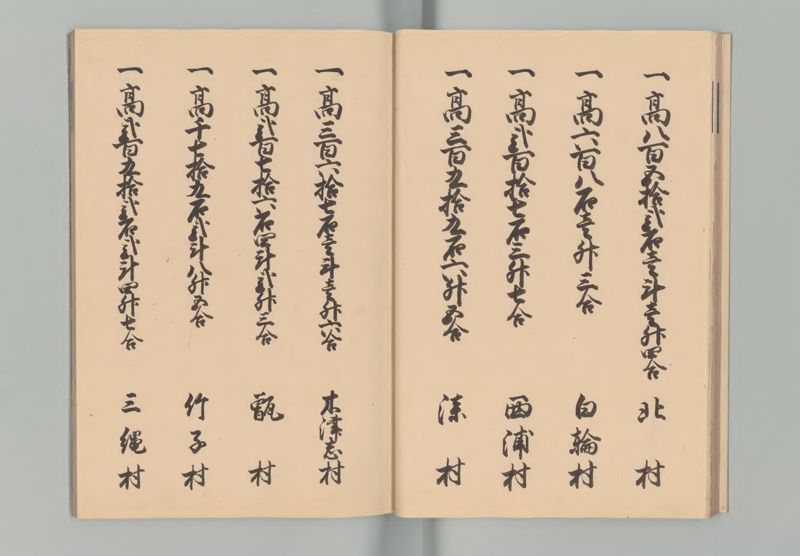 一高八百五拾弐石壱斗壱升四合 北村
一高六百八石壱升三合 白輪村
一高弐百拾七石三升七合 西浦村
一高三百五拾五石六升五合 湊村
一高三百六拾七石壱斗壱升六合 木津志村
一高弐百七拾六石四斗弐升三合 甑村
一高千七拾五石弐斗八升五合 竹子村
一高弐百五拾弐石弐斗四升七合 三縄村